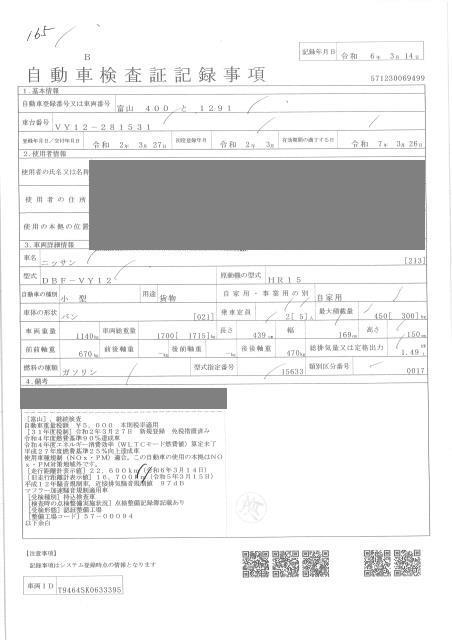 165/
B
記録年月日 令和 6年 3月 14日
自動車検査証記録事項
571230069499
1.基本情報
自動車登録番号又は車両番号 富山 400 と 1291
車台番号 VY12-281531
登録年月日/交付年月日 令和 2年 3月 27日 初度登録年月 令和 2年 3月 有効期間の満了する日 令和 7年 3月 26日
2.使用者情報
使用者の氏名又は名称
使用者の住所
使用の本拠の位置
3.車両詳細情報
車名 ニッサン [213]
型式 DBF-VY12 原動機の型式 HR15
自動車の種別 小型 用途 貨物 自家用・事業用の別 自家用
車体の形状 バン [021] 乗車定員 2[ 5]人 最大積載量 450[ 300]kg
車両重量 1140kg 車両総重量 1700[ 1715]kg 長さ 439cm 幅 169cm 高さ 150cm
前前軸重 670kg 前後軸重 -kg 後前軸重 -kg 後後軸重 470kg 総排気量又は定格出力 1.49L
燃料の種類 ガソリン 型式指定番号 15633 類別区分番号 0017
4.備考
[富山], 継続検査
自動車重量税額 ¥5,000 本則税率適用
[31年度税制]令和2年3月27日 新規登録 免税措置済み
令和4年度燃費基準90%達成車
令和4年度エネルギー消費効率(WLTCモード燃費値)算定未了
平成27年度燃費基準25%向上達成車
使用車種規制(NOx・PM)適合,この自動車の使用の本拠はNO
x・PM対策地域外です。
[走行距離計表示値]22,600km(令和6年3月14日)
[旧走行距離計表示値]16,700km(令和5年3月15日)
平成12年騒音規制車,近接排気騒音規制値 97dB
マフラー加速騒音規制適用車
[受検種別]持込検査車
[検査時の点検整備実施状況]点検整備記録簿記載あり
[受検形態]認証整備工場
[整備工場コード]57-00094
以下余白
[注意事項]
記録事項はシステム登録時点の情報となります
車両ID T9464SK0633395